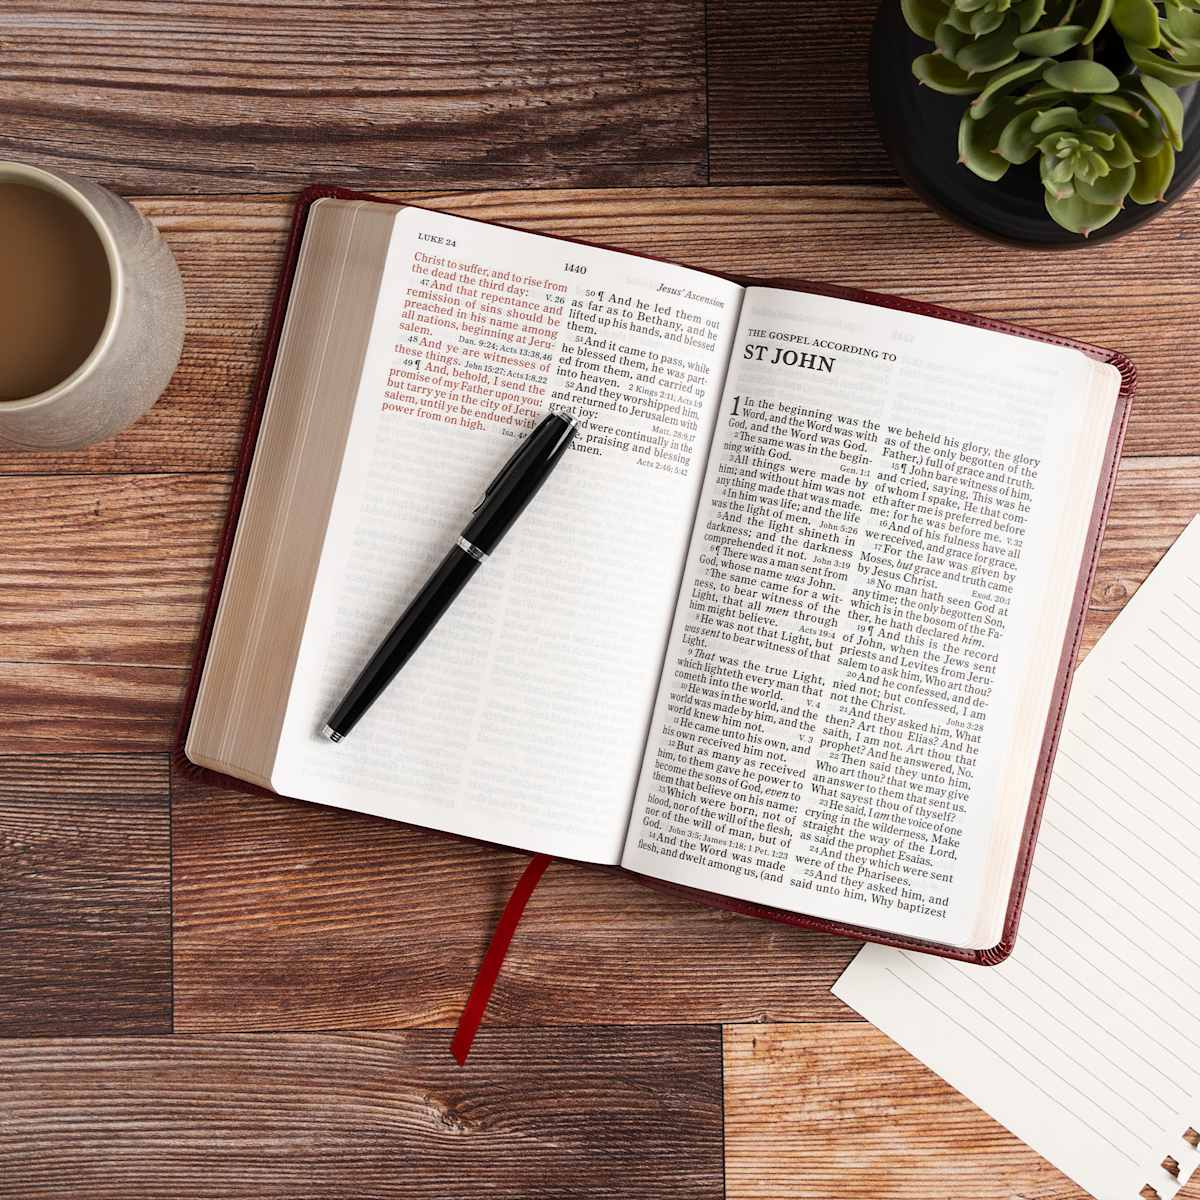 LUKE 24
1440
Jesus' Ascension
Christ to suffer, and to rise from
the dead the third day: V. 26
47 And that repentance and
remission of sins should be
preached in his name among
all nations, beginning at Jeru-
salem. Dan. 9:24; Acts 13:38,46
48 And ye are witnesses of
these things. John 15:27; Acts 1:8,22
49 ¶ And, behold, I send the
promise of my Father upon you:
but tarry ye in the city of Jeru-
salem, until ye be endued with
power from on high. Isa. 44
50 ¶ And he led them out
as far as to Bethany, and he
lifted up his hands, and blessed
them.
51 And it came to pass, while
he blessed them, he was part-
ed from them, and carried up
into heaven. 2 Kings 2:11; Acts 1:9
52 And they worshipped him,
and returned to Jerusalem with
great joy: Matt. 28:9,17
were continually in the
praising and blessing
Amen. Acts 2:46; 5:42
THE GOSPEL ACCORDING TO
ST JOHN
1 In the beginning was the
Word, and the Word was with
God, and the Word was God.
2 The same was in the begin-
ning with God. Gen. 1:1
3 All things were made by
him; and without him was not
any thing made that was made.
4 In him was life; and the life
was the light of men. John 5:26
5 And the light shineth in
darkness; and the darkness
comprehended it not. John 3:19
6 ¶ There was a man sent from
God, whose name was John.
7 The same came for a wit-
ness, to bear witness of the
Light, that all men through
him might believe. Acts 19:4
8 He was not that Light, but
was sent to bear witness of that
Light.
9 That was the true Light,
which lighteth every man that
cometh into the world. V. 4
10 He was in the world, and the
world was made by him, and the
world knew him not. V. 3
11 He came unto his own, and
his own received him not.
12 But as many as received
him, to them gave he power to
become the sons of God, even to
them that believe on his name:
13 Which were born, not of
blood, nor of the will of the flesh,
nor of the will of man, but of
God. John 3:5; James 1:18; 1 Pet. 1:23
14 And the Word was made
flesh, and dwelt among us, (and
we beheld his glory, the glory
as of the only begotten of the
Father,) full of grace and truth.
15 ¶ John bare witness of him,
and cried, saying, This was he
of whom I spake, He that com-
eth after me is preferred before
me: for he was before me. V. 32
16 And of his fulness have all
we received, and grace for grace.
17 For the law was given by
Moses, but grace and truth came
by Jesus Christ. Exod. 20:1
18 No man hath seen God at
any time; the only begotten Son,
which is in the bosom of the Fa-
ther, he hath declared him.
19 ¶ And this is the record
of John, when the Jews sent
priests and Levites from Jeru-
salem to ask him, Who art thou?
20 And he confessed, and de-
nied not; but confessed, I am
not the Christ. John 3:28
21 And they asked him, What
then? Art thou Elias? And he
saith, I am not. Art thou that
prophet? And he answered, No.
22 Then said they unto him,
Who art thou? that we may give
an answer to them that sent us.
What sayest thou of thyself?
23 He said, I am the voice of one
crying in the wilderness, Make
straight the way of the Lord,
as said the prophet Esaias.
24 And they which were sent
were of the Pharisees.
25 And they asked him, and
said unto him, Why baptizest